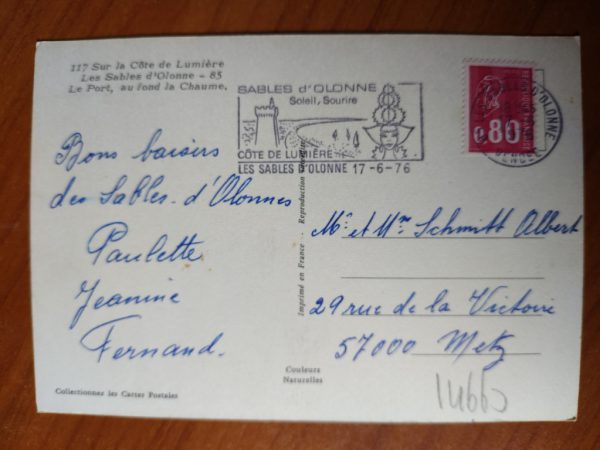 117 Sur la Côte de Lumière
Les Sables d'Olonne - 85
Le Port, au fond la Chaume.
SABLES d'OLONNE
Soleil, Sourire
CÔTE DE LUMIÈRE
LES SABLES D'OLONNE 17-6-76
0,80
D'OLONNE
VENDEE
Bons baisers
des Sables-d'Olonnes
Paulette
Jeanine
Fernand.
Imprimé en France - Reproduction
Mr et Mme Schmitt Albert
29 rue de la Victoire
57000 Metz
Couleurs
Naturelles
Collectionnez les Cartes Postales